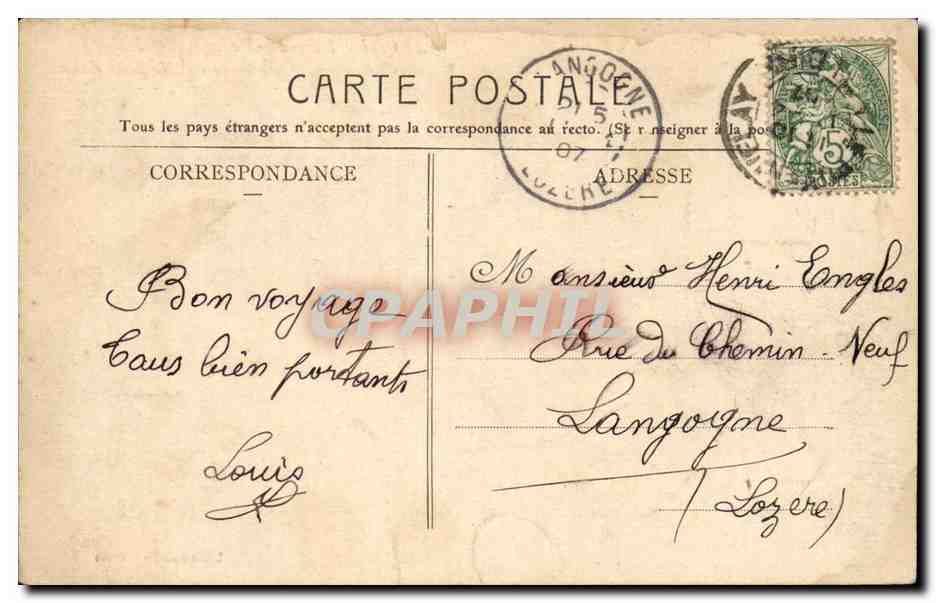 CARTE POSTALE
Tous les pays étrangers n'acceptent pas la correspondance au recto. (Se renseigner à la pos
CORRESPONDANCE
ADRESSE
LANGOGNE
5
07
LOZÈRE
5
POSTES
Bon voyage
Tous bien portants
Louis
Monsieur Henri Engles
Rue du Chemin-Neuf
Langogne
(Lozere)
CPAPHIL